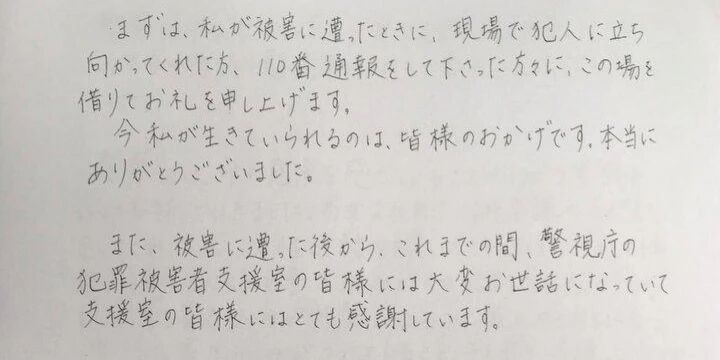 まずは、私が被害に遭ったときに、現場で犯人に立ち
向かってくれた方、110番通報をして下さった方々に、この場を
借りてお礼を申し上げます。
今私が生きていられるのは、皆様のおかげです。本当に
ありがとうございました。
また、被害に遭った後から、これまでの間、警視庁の
犯罪被害者支援室の皆様には大変お世話になっていて
支援室の皆様にはとても感謝しています。